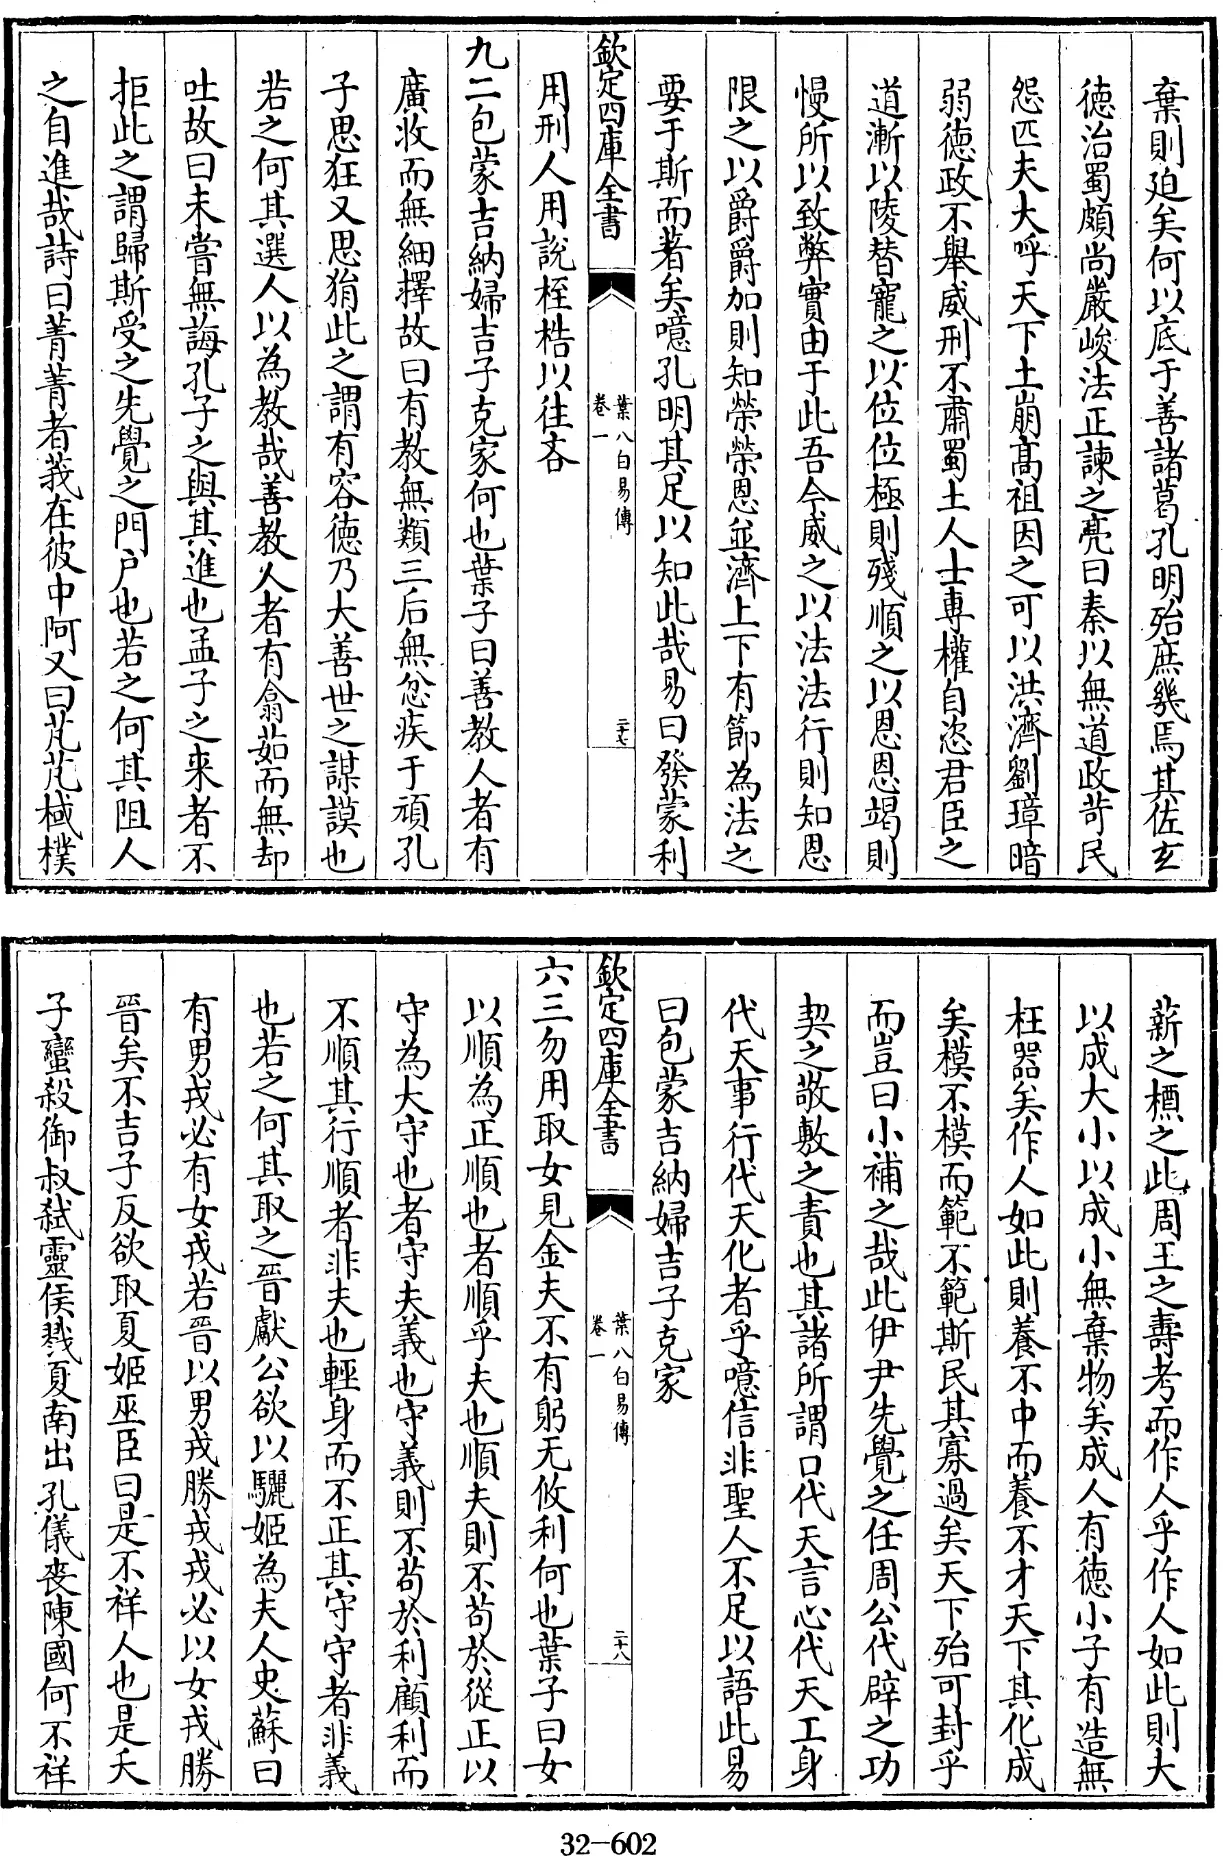 棄則廹矣何以底于善諸葛孔明殆庶幾焉其佐玄
徳治蜀頗尚嚴峻法正諫之亮曰秦以無道政苛民
怨匹夫大呼天下土崩髙祖因之可以洪濟劉璋暗
弱徳政不舉威刑不肅蜀土人士專權自恣君臣之
道漸以陵替寵之以位位極則殘順之以恩恩竭則
慢所以致弊實由于此吾今威之以法法行則知恩
限之以爵爵加則知榮榮恩並濟上下有節為法之
要于斯而著矣噫孔明其足以知此哉易曰發蒙利
欽定四庫全書
葉八白易傳
卷一
二十七
用刑人用説桎梏以往吝
九二包蒙吉納婦吉子克家何也葉子曰善教人者有
廣收而無細擇故曰有教無類三后無忿疾于頑孔
子思狂又思狷此之謂有容徳乃大善世之謀謨也
若之何其選人以為教哉善教人者有翕茹而無却
吐故曰未嘗無誨孔子之與其進也孟子之來者不
拒此之謂歸斯受之先覺之門户也若之何其阻人
之自進哉詩曰菁菁者莪在彼中阿又曰芃芃棫樸
薪之槱之此周王之壽考而作人乎作人如此則大
以成大小以成小無棄物矣成人有徳小子有造無
枉器矣作人如此則養不中而養不才天下其化成
矣模不模而範不範斯民其寡過矣天下殆可封乎
而豈曰小補之哉此伊尹先覺之任周公代辟之功
契之敬敷之責也其諸所謂口代天言心代天工身
代天事行代天化者乎噫信非聖人不足以語此易
曰包蒙吉納婦吉子克家
欽定四庫全書
葉八白易傳
卷一
二十八
六三勿用取女見金夫不有躬无攸利何也葉子曰女
以順為正順也者順乎夫也順夫則不苟於從正以
守為大守也者守夫義也守義則不苟於利顧利而
不順其行順者非夫也輕身而不正其守守者非義
也若之何其取之晉獻公欲以驪姬為夫人史蘇曰
有男戎必有女戎若晉以男戎勝戎戎必以女戎勝
晉矣不吉子反欲取夏姬巫臣曰是不祥人也是夭
子蠻殺御叔弑靈侯戮夏南出孔儀喪陳國何不祥
32-602